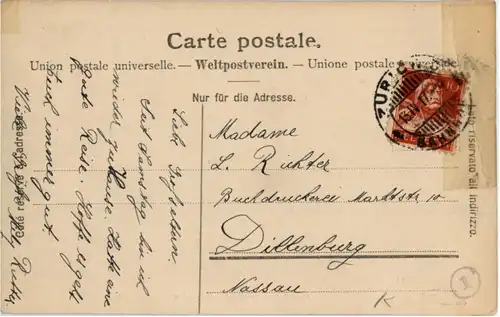 Carte postale.
Union postale universelle. — Weltpostverein. — Unione postale
Nur für die Adresse.
Côté réservé à l'adresse.
Lato riservato all'indirizzo.
ZÜRICH
Madame
L. Richter
Buchdruckerei Marktstr 10
Dillenburg
Nassau
K
Seit Samstag bin ich
wieder zuhause. Hatte eine
gute Reise. Hoffe es geht
Euch immer gut.